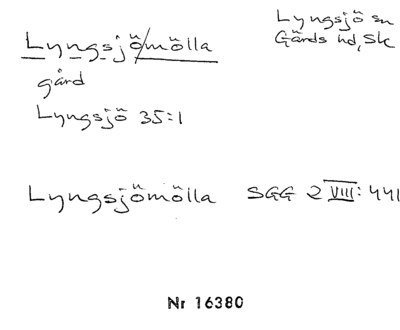 Lyngsjö/mölla
Lyngsjö sn
Gärds hd, Sk
gård
Lyngsjö 35:1
Lyngsjömölla SGG 2 VIII: 441
Nr 16380